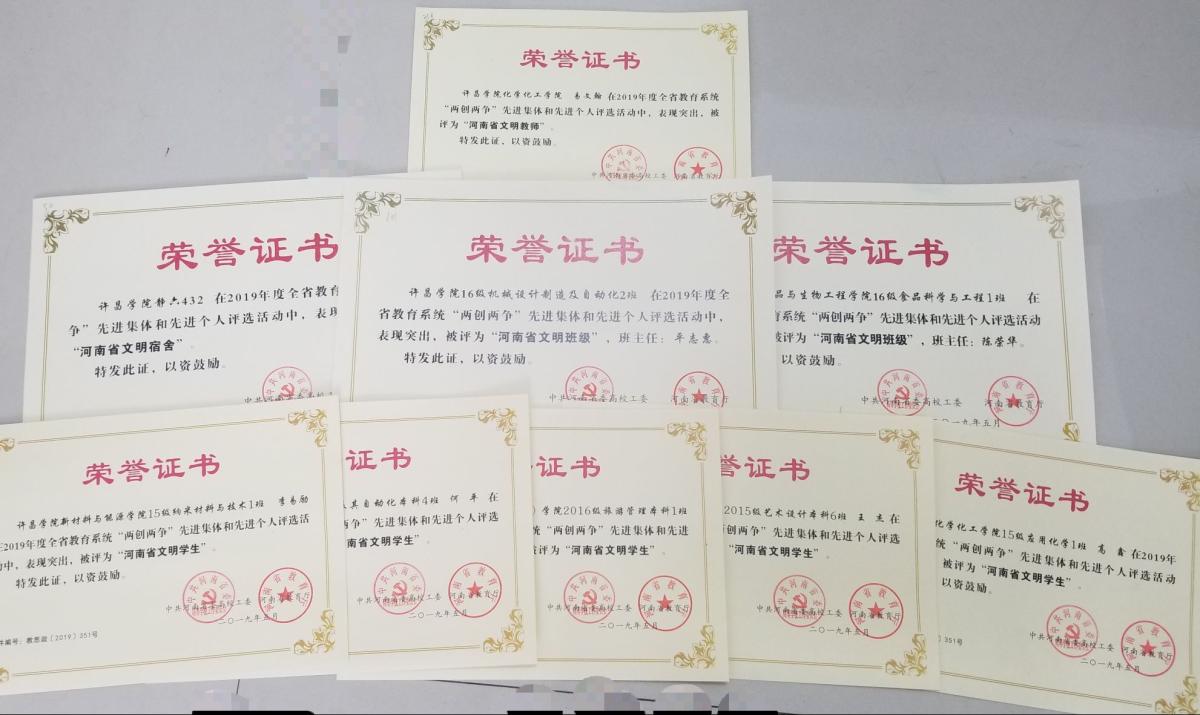 荣誉证书
许昌学院化学化工学院 易文翰 在2019年度全省教育系统
“两创两争”先进集体和先进个人评选活动中，表现突出，被
评为“河南省文明教师”。
特发此证，以资鼓励。
中共河南省委高校工委 河南省教育厅
荣誉证书
许昌学院静六432 在2019年度全省教育
争”先进集体和先进个人评选活动中，表现
“河南省文明宿舍”。
特发此证，以资鼓励。
中共河南省委高校工
荣誉证书
许昌学院16级机械设计制造及自动化2班 在2019年度全
省教育系统“两创两争”先进集体和先进个人评选活动中，
表现突出，被评为“河南省文明班级”，班主任：平志意。
特发此证，以资鼓励。
中共河南省委高校工委 河南省教育厅
荣誉证书
品与生物工程学院16级食品科学与工程1班 在
育系统“两创两争”先进集体和先进个人评选活动
被评为“河南省文明班级”，班主任：陈荣华。
以资鼓励。
中共河南省委高校工委 河南省教育厅
一九年五月
荣誉证书
许昌学院新材料与能源学院15级纳米材料与技术1班 李易励
2019年度全省教育系统“两创两争”先进集体和先进个人评选活
动中，表现突出，被评为“河南省文明学生”。
特发此证，以资鼓励。
中共河南省委高校工委 河南省教育厅
二〇一九年五月
件编号：教思政〔2019〕351号
证书
其自动化本科4班 何平 在
争”先进集体和先进个人评选
南省文明学生”。
中共河南省委高校工委 河南省教育厅
二〇一九年五月
证书
学院2016级旅游管理本科1班
统“两创两争”先进集体和先进
评为“河南省文明学生”。
中共河南省委高校工委 河南省教育厅
二〇一九年五月
誉证书
2015级艺术设计本科6班 王杰 在
“两创两争”先进集体和先进个人评选
“河南省文明学生”。
中共河南省委高校工委 河南省教育厅
二〇一九年五月
荣誉证书
化学化工学院15级应用化学1班 高鑫 在2019年
统“两创两争”先进集体和先进个人评选活动
被评为“河南省文明学生”。
以资鼓励。
中共河南省委高校工委 河南省教育厅
二〇一九年五月
〕351号